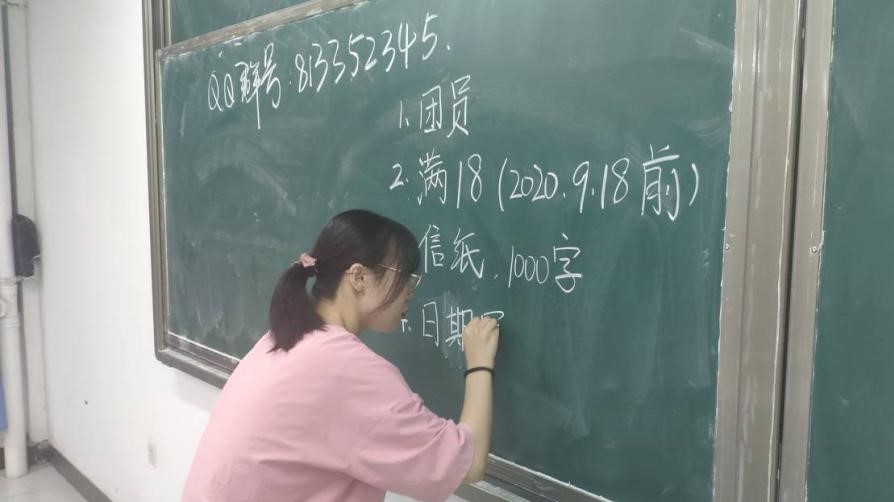 QQ群号:813352345.
1.团员
2.满18(2020.9.18前)
信纸.1000字
日期